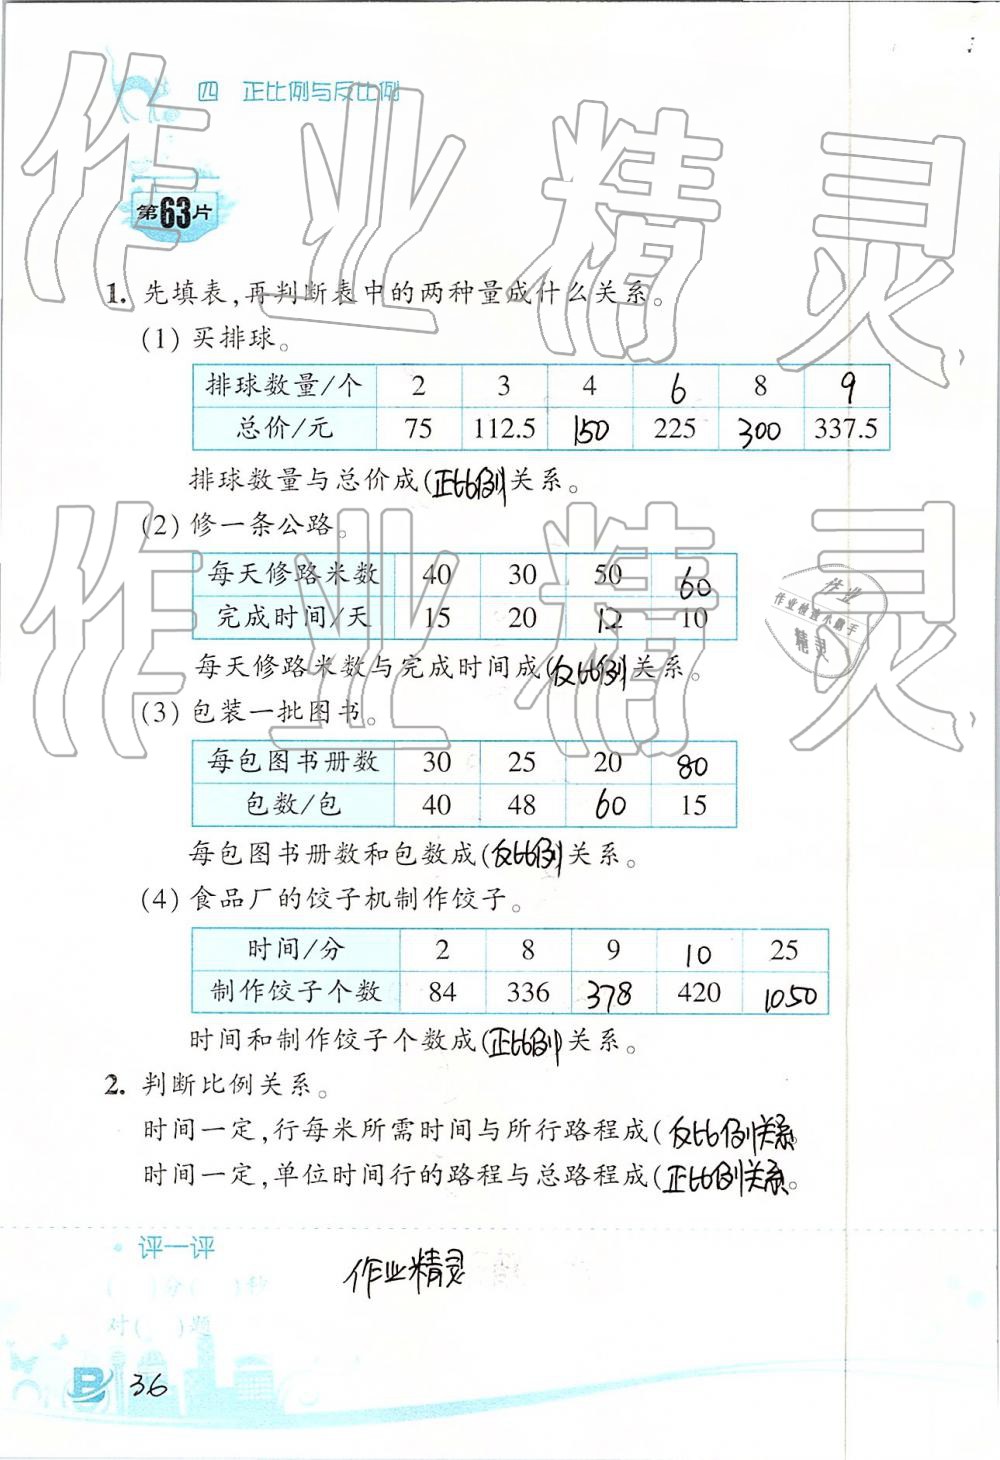 四 正比例与反比例
第63片
1. 先填表,再判断表中的两种量成什么关系。
(1) 买排球。
排球数量/个 2 3 4 6 8 9
总价/元 75 112.5 150 225 300 337.5
排球数量与总价成(正比例)关系。
(2) 修一条公路。
每天修路米数 40 30 50 60
完成时间/天 15 20 12 10
每天修路米数与完成时间成(反比例)关系。
(3) 包装一批图书。
每包图书册数 30 25 20 80
包数/包 40 48 60 15
每包图书册数和包数成(反比例)关系。
(4) 食品厂的饺子机制作饺子。
时间/分 2 8 9 10 25
制作饺子个数 84 336 378 420 1050
时间和制作饺子个数成(正比例)关系。
2. 判断比例关系。
时间一定,行每米所需时间与所行路程成(反比例)关系。
时间一定,单位时间行的路程与总路程成(正比例)关系。
评一评
( )分( )秒
对( )题
作业精灵
36
作业精灵
作业精灵
作业
作业检查小帮手
精灵